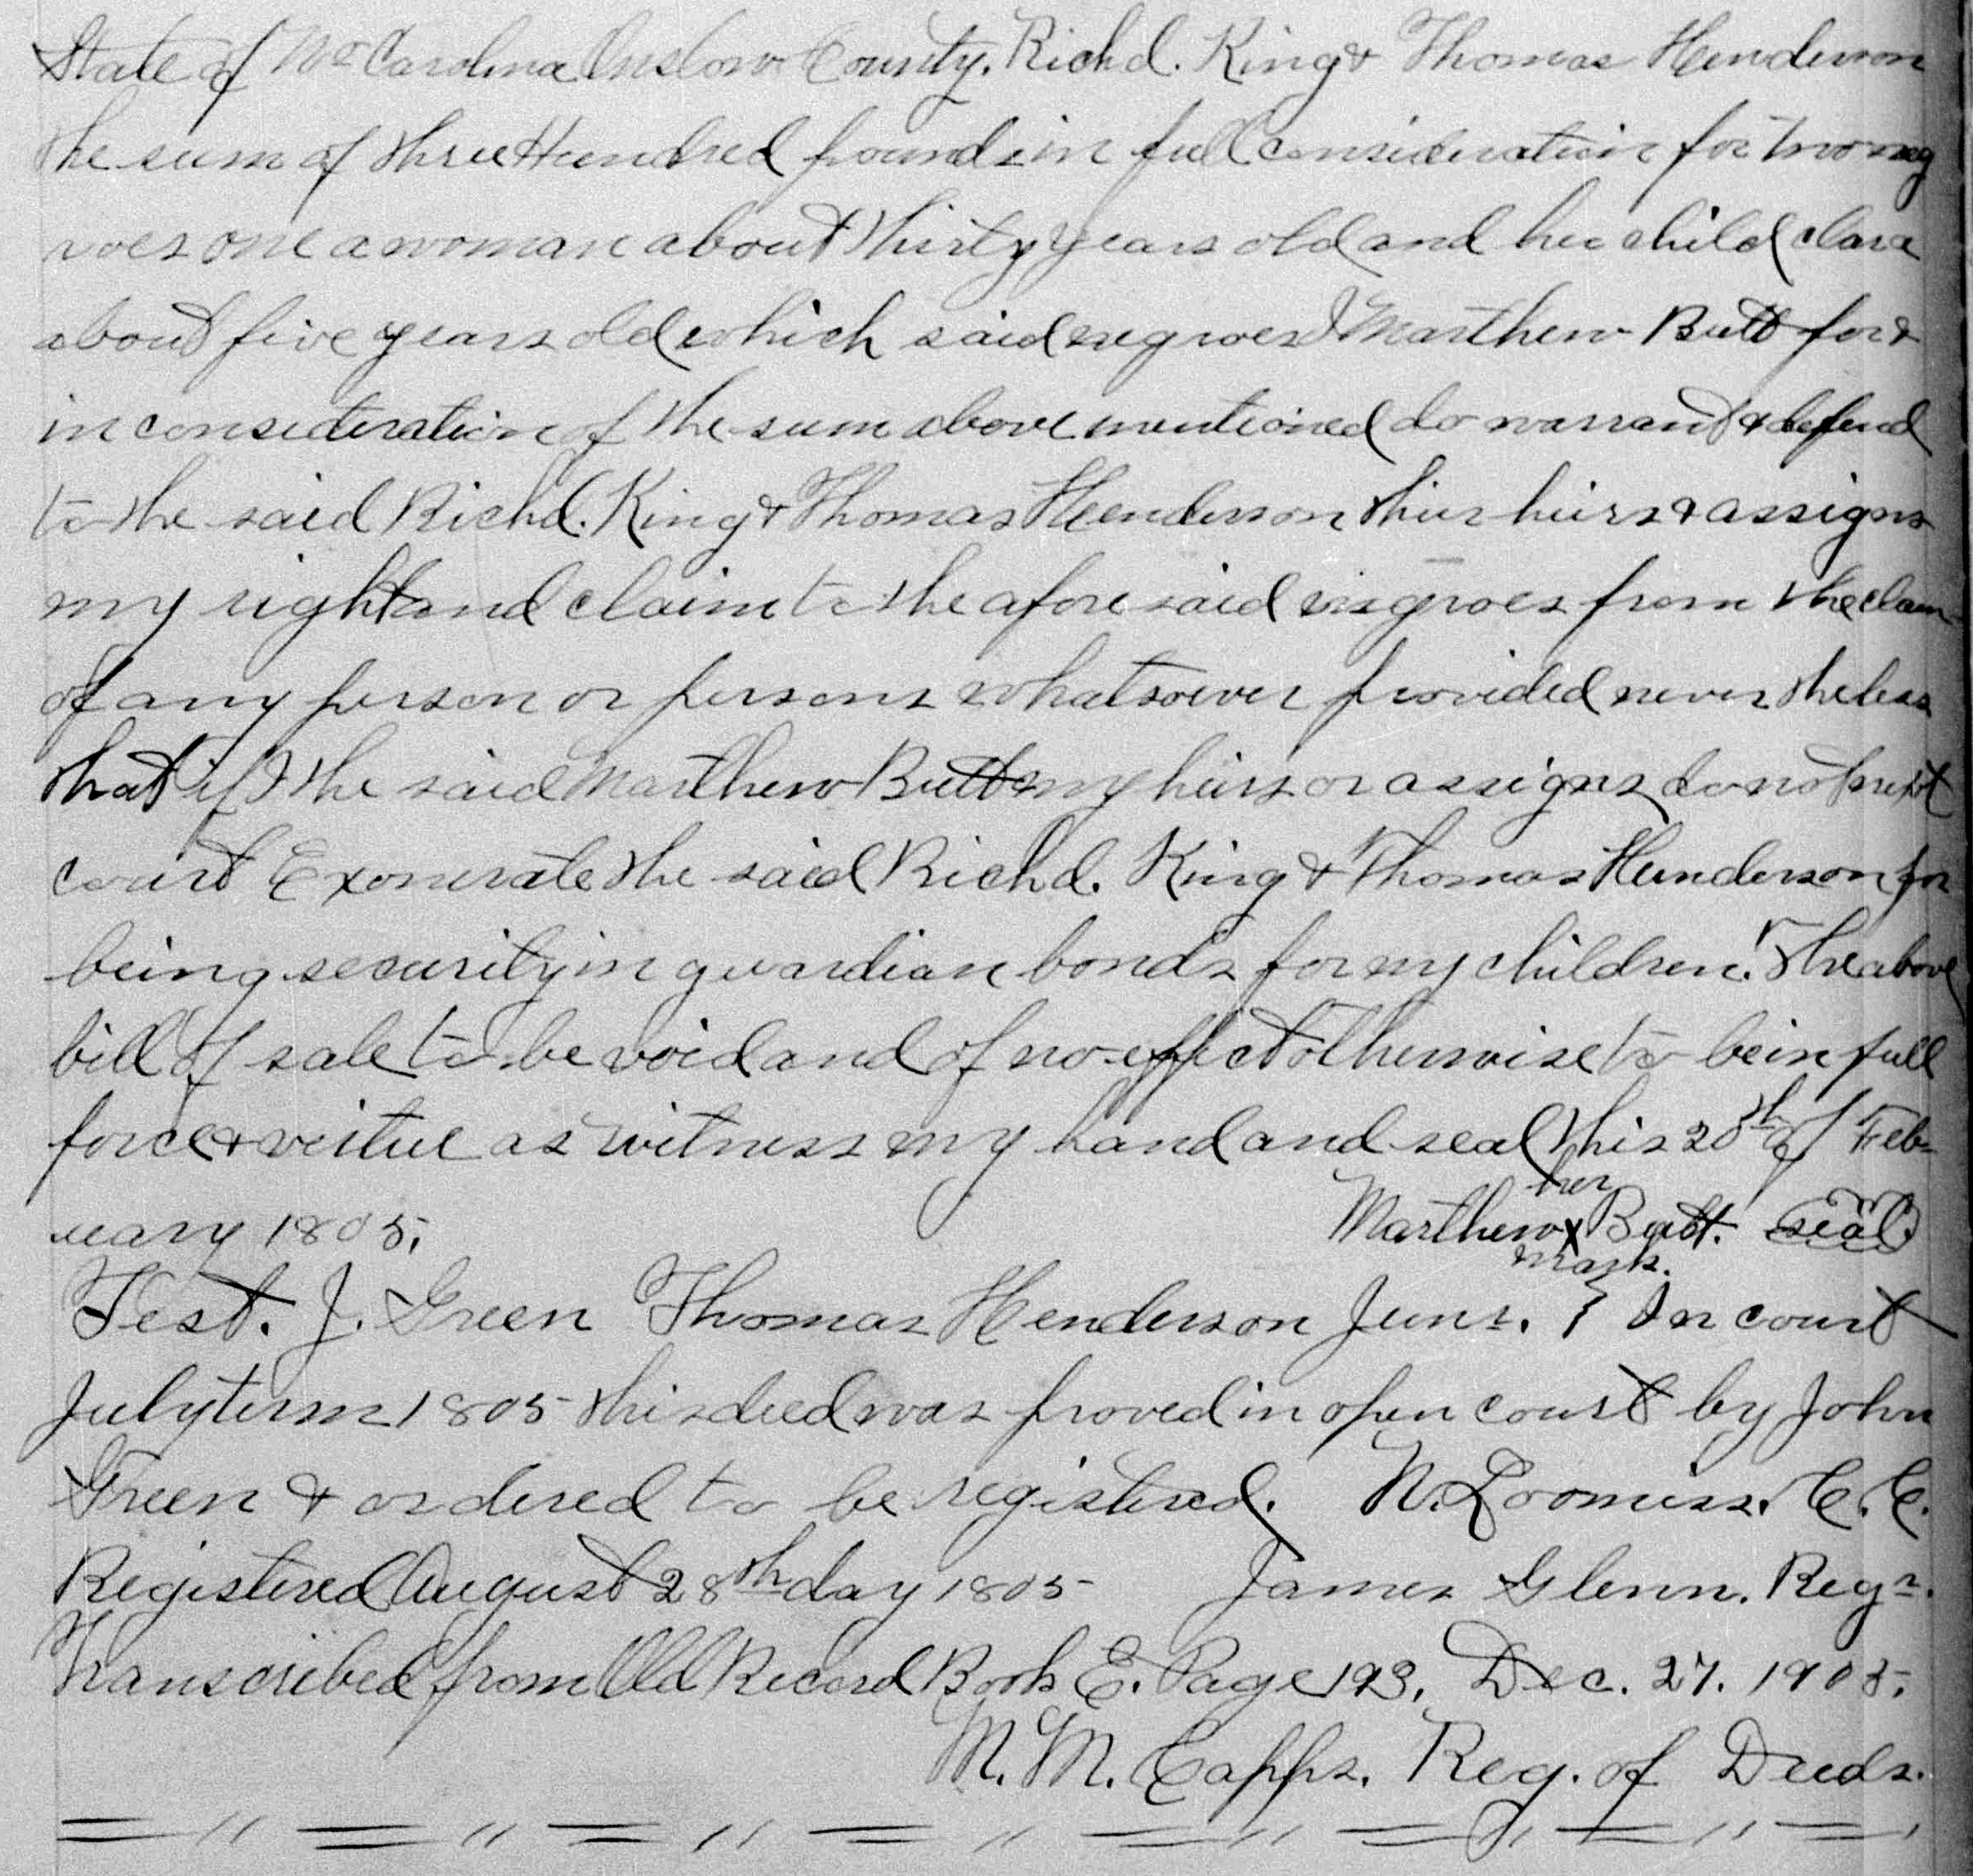 State of No Carolina Onslow County. Richd. King & Thomas Henderson
the sum of three Hundred pounds in full consideration for two neg
roes one a woman about thirty years old and her child clara
about five years old which said negroes I Marthew Butt for &
in consideration of the sum above mentioned do warrant & defend
to the said Richd. King & Thomas Henderson thier hiers & assigns
my right and claim to the afore said negroes from the claim
of any person or persons whatsoever provided never theless
that if I the said Marthew Butt my hiers or assigns do not next
court Exonerate the said Richd. King & Thomas Henderson for
being security in guardian bonds for my children. The above
bill of sale to be void and of no effect otherwise to be in full
force & vertue as witness my hand and seal this 20th of Feb-
uary 1805.
her
Marthew X Butt. seal
mark.
Test. J. Green Thomas Henderson Junr. } In court
July term 1805 this deed was proved in open court by John
Green & ordered to be registered. N. Loomiss. C. C.
Registered August 28th day 1805 James Glenn. Regr.
Transcribed from Old Record Book E. Page 193, Dec. 27. 1905.
M. M. Capps. Reg. of Deeds.